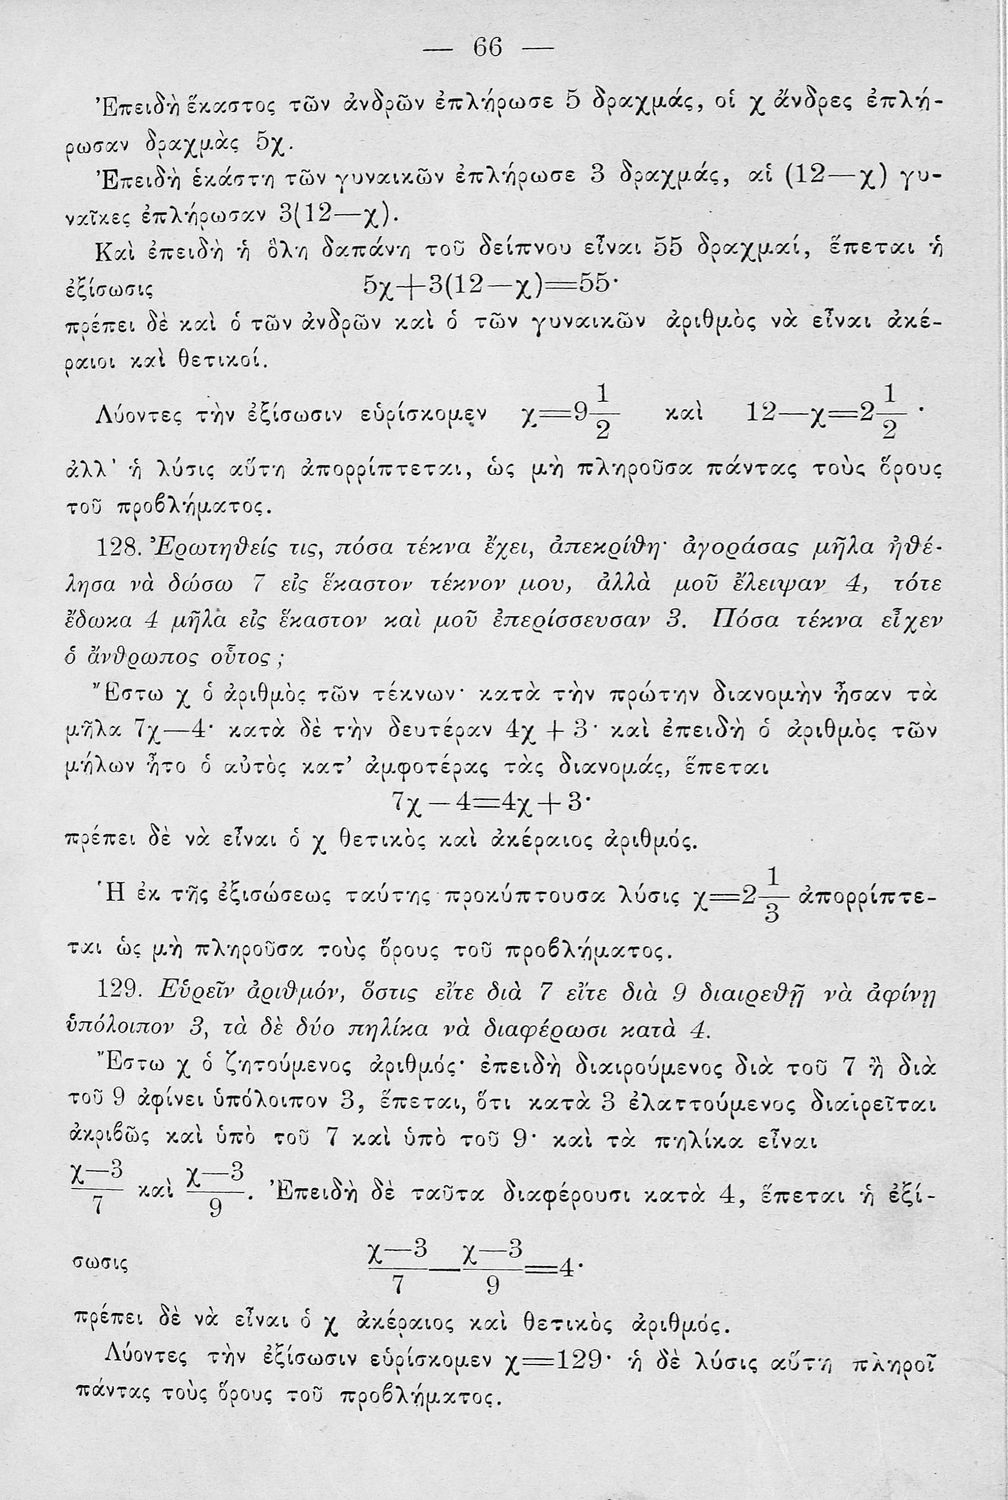 — 66 —
Ἐπειδὴ ἕκαστος τῶν ἀνδρῶν ἐπλήρωσε 5 δραχμάς, οἱ χ ἄνδρες ἐπλή-
ρωσαν δραχμὰς 5χ.
Ἐπειδὴ ἑκάστη τῶν γυναικῶν ἐπλήρωσε 3 δραχμάς, αἱ (12—χ) γυ-
ναῖκες ἐπλήρωσαν 3(12—χ).
Καὶ ἐπειδὴ ἡ ὅλη δαπάνη τοῦ δείπνου εἶναι 55 δραχμαί, ἕπεται ἡ
ἐξίσωσις 5χ+3(12—χ)=55·
πρέπει δὲ καὶ ὁ τῶν ἀνδρῶν καὶ ὁ τῶν γυναικῶν ἀριθμὸς νὰ εἶναι ἀκέ-
ραιοι καὶ θετικοί.
Λύοντες τὴν ἐξίσωσιν εὑρίσκομεν χ=9 1/2 καὶ 12—χ=2 1/2 ·
ἀλλ' ἡ λύσις αὕτη ἀπορρίπτεται, ὡς μὴ πληροῦσα πάντας τοὺς ὅρους
τοῦ προβλήματος.
128. Ἐρωτηθείς τις, πόσα τέκνα ἔχει, ἀπεκρίθη· ἀγοράσας μῆλα ἠθέ-
λησα νὰ δώσω 7 εἰς ἕκαστον τέκνον μου, ἀλλὰ μοῦ ἔλειψαν 4, τότε
ἔδωκα 4 μῆλα εἰς ἕκαστον καὶ μοῦ ἐπερίσσευσαν 3. Πόσα τέκνα εἶχεν
ὁ ἄνθρωπος οὗτος ;
Ἔστω χ ὁ ἀριθμὸς τῶν τέκνων· κατὰ τὴν πρώτην διανομὴν ἦσαν τὰ
μῆλα 7χ—4· κατὰ δὲ τὴν δευτέραν 4χ + 3· καὶ ἐπειδὴ ὁ ἀριθμὸς τῶν
μήλων ἦτο ὁ αὐτὸς κατ' ἀμφοτέρας τὰς διανομάς, ἕπεται
7χ — 4=4χ + 3·
πρέπει δὲ νὰ εἶναι ὁ χ θετικὸς καὶ ἀκέραιος ἀριθμός.
Ἡ ἐκ τῆς ἐξισώσεως ταύτης προκύπτουσα λύσις χ=2 1/3 ἀπορρίπτε-
ται ὡς μὴ πληροῦσα τοὺς ὅρους τοῦ προβλήματος.
129. Εὑρεῖν ἀριθμόν, ὅστις εἴτε διὰ 7 εἴτε διὰ 9 διαιρεθῇ νὰ ἀφίνῃ
ὑπόλοιπον 3, τὰ δὲ δύο πηλίκα νὰ διαφέρωσι κατὰ 4.
Ἔστω χ ὁ ζητούμενος ἀριθμός· ἐπειδὴ διαιρούμενος διὰ τοῦ 7 ἢ διὰ
τοῦ 9 ἀφίνει ὑπόλοιπον 3, ἕπεται, ὅτι κατὰ 3 ἐλαττούμενος διαιρεῖται
ἀκριβῶς καὶ ὑπὸ τοῦ 7 καὶ ὑπὸ τοῦ 9· καὶ τὰ πηλίκα εἶναι
χ—3/7 καὶ χ—3/9. Ἐπειδὴ δὲ ταῦτα διαφέρουσι κατὰ 4, ἕπεται ἡ ἐξί-
σωσις χ—3/7 — χ—3/9 =4·
πρέπει δὲ νὰ εἶναι ὁ χ ἀκέραιος καὶ θετικὸς ἀριθμός.
Λύοντες τὴν ἐξίσωσιν εὑρίσκομεν χ=129· ἡ δὲ λύσις αὕτη πληροῖ
πάντας τοὺς ὅρους τοῦ προβλήματος.